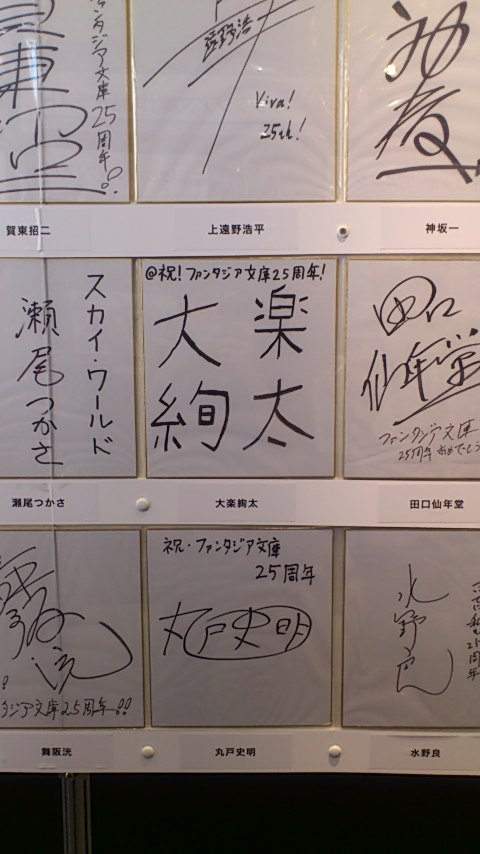 ファンタジア文庫25周年!!
賀東招二
Viva!
25th!
上遠野浩平
神坂一
スカイ・ワールド
瀬尾つかさ
瀬尾つかさ
@祝!ファンタジア文庫25周年!
楽太
大絢
大楽絢太
田口
仙年堂
ファンタジア文庫
25周年おめでとう
田口仙年堂
タジア文庫25周年!!
舞阪洸
祝・ファンタジア文庫
25周年
丸戸史明
丸戸史明
水野良
25周年
水野良